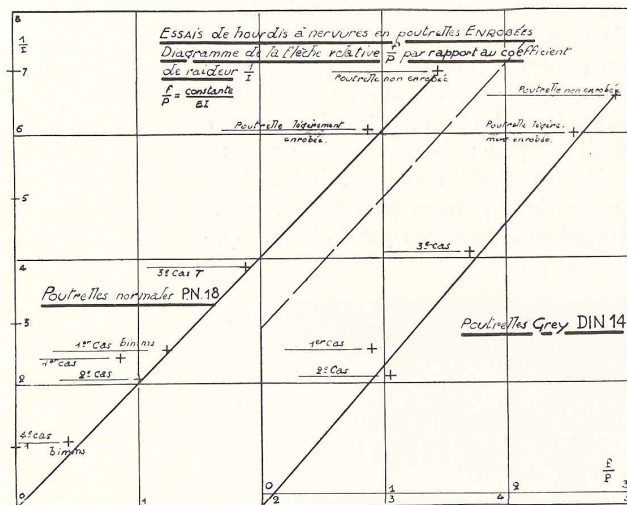 8
1/I
Essais de hourdis à nervures en poutrelles ENROBÉES
Diagramme de la flèche relative f/P par rapport au coefficient
de raideur 1/I
f/P = constante/EI
Poutrelle non enrobée
Poutrelle non enrobée
7
Poutrelle légèrement
enrobée.
Poutrelle légère.
ment enrobée.
6
5
3e cas
4
3e cas T
Poutrelles normales P.N.18
3
Poutrelles Grey DIN 14
1er cas bimms
1er cas
1er cas
2e cas
2e cas
2
4e cas
bimms
1
f/P
0
1
2
3
0
1
2
3
4